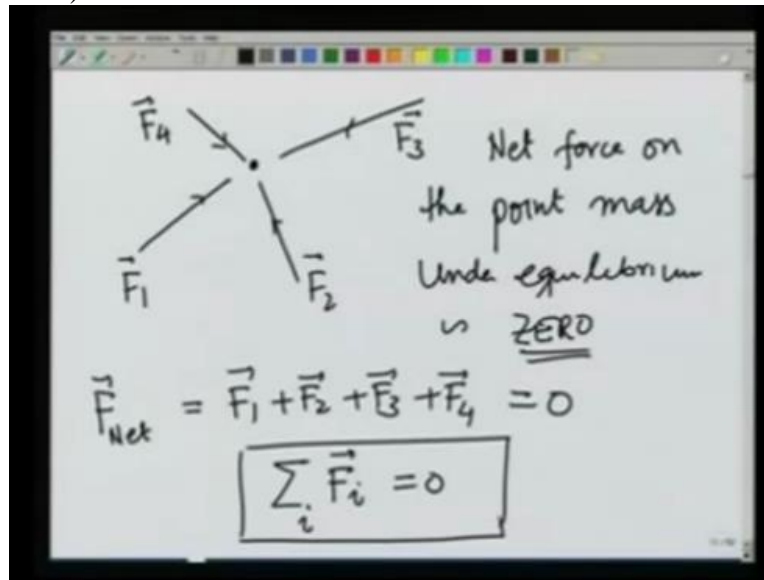 F⃗4
F⃗3
Net force on
the point mass
F⃗1
F⃗2
Under equilibrium
is ZERO
F⃗Net = F⃗1 + F⃗2 + F⃗3 + F⃗4 = 0
∑i F⃗i = 0